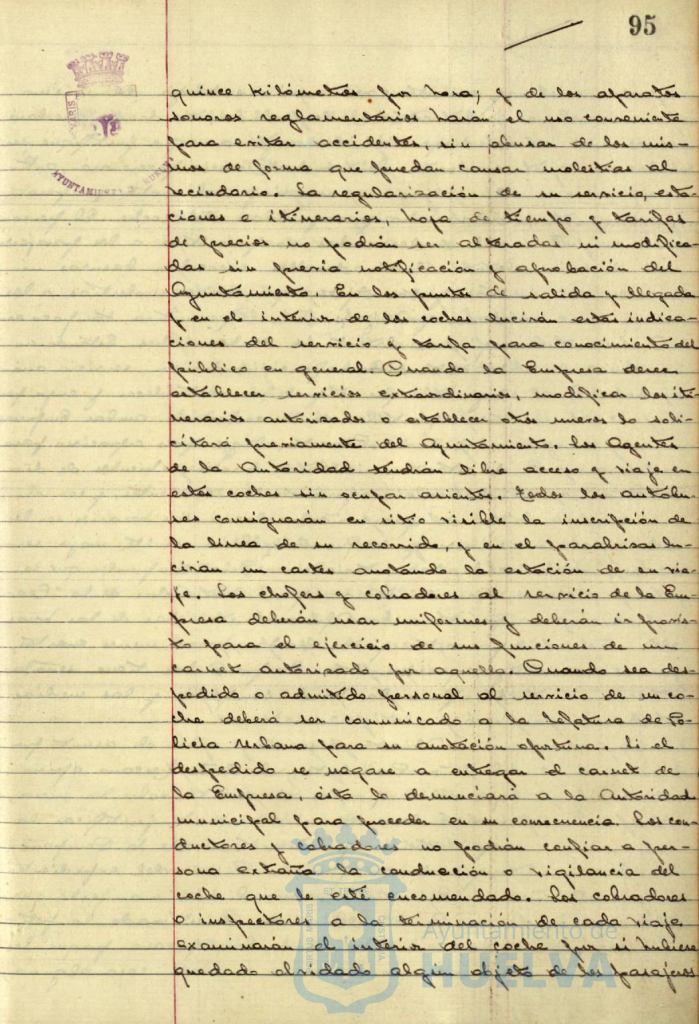 95
quince kilómetros por hora; y de los aparatos
sonoros reglamentarios harán el uso conveniente
para evitar accidentes, sin abusar de los mis-
mos de forma que puedan causar molestias al
vecindario. La regularización de su servicio, esta-
ciones e itinerarios, hoja de tiempo y tarifas
de precios no podrán ser alteradas ni modifica-
das sin previa notificación y aprobación del
Ayuntamiento. En los puntos de salida y llegada
y en el interior de los coches lucirán estas indica-
ciones del servicio y tarifa para conocimiento del
público en general. Cuando la Empresa desee
establecer servicios extraordinarios, modificar los iti-
nerarios autorizados o establecer otros nuevos lo soli-
citará previamente del Ayuntamiento. Los Agentes
de la Autoridad tendrán libre acceso y viaje en
estos coches sin ocupar asientos. Todos los autobu-
ses consignarán en sitio visible la inscripción de
la línea de su recorrido, y en el parabrisas lu-
cirán un cartel anotando la estación de su via-
je. Los chofers y cobradores al servicio de la Em-
presa deberán usar uniformes y deberán ir provis-
to para el ejercicio de sus funciones de un
carnet autorizado por aquella. Cuando sea des-
pedido o admitido personal al servicio de un co-
che deberá ser comunicado a la Jefatura de Po-
licía Urbana para su anotación oportuna. Si el
despedido se negase a entregar el carnet de
la Empresa, ésta lo denunciará a la Autoridad
municipal para proceder en su consecuencia. Los con-
ductores y cobradores no podrán confiar a per-
sona extraña la conducción o vigilancia del
coche que le esté encomendado. Los cobradores
o inspectores a la terminación de cada viaje
examinarán el interior del coche por si hubiese
quedado olvidado algún objeto de los pasajeros
AYUNTAMIENTO
Ayuntamiento de
HUELVA